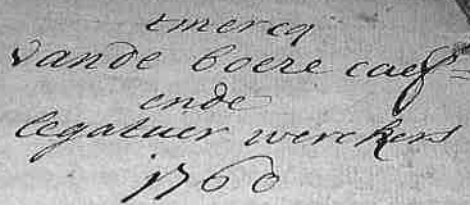 tmercq
vande boere caef-
ende
legatuer werckers
1760